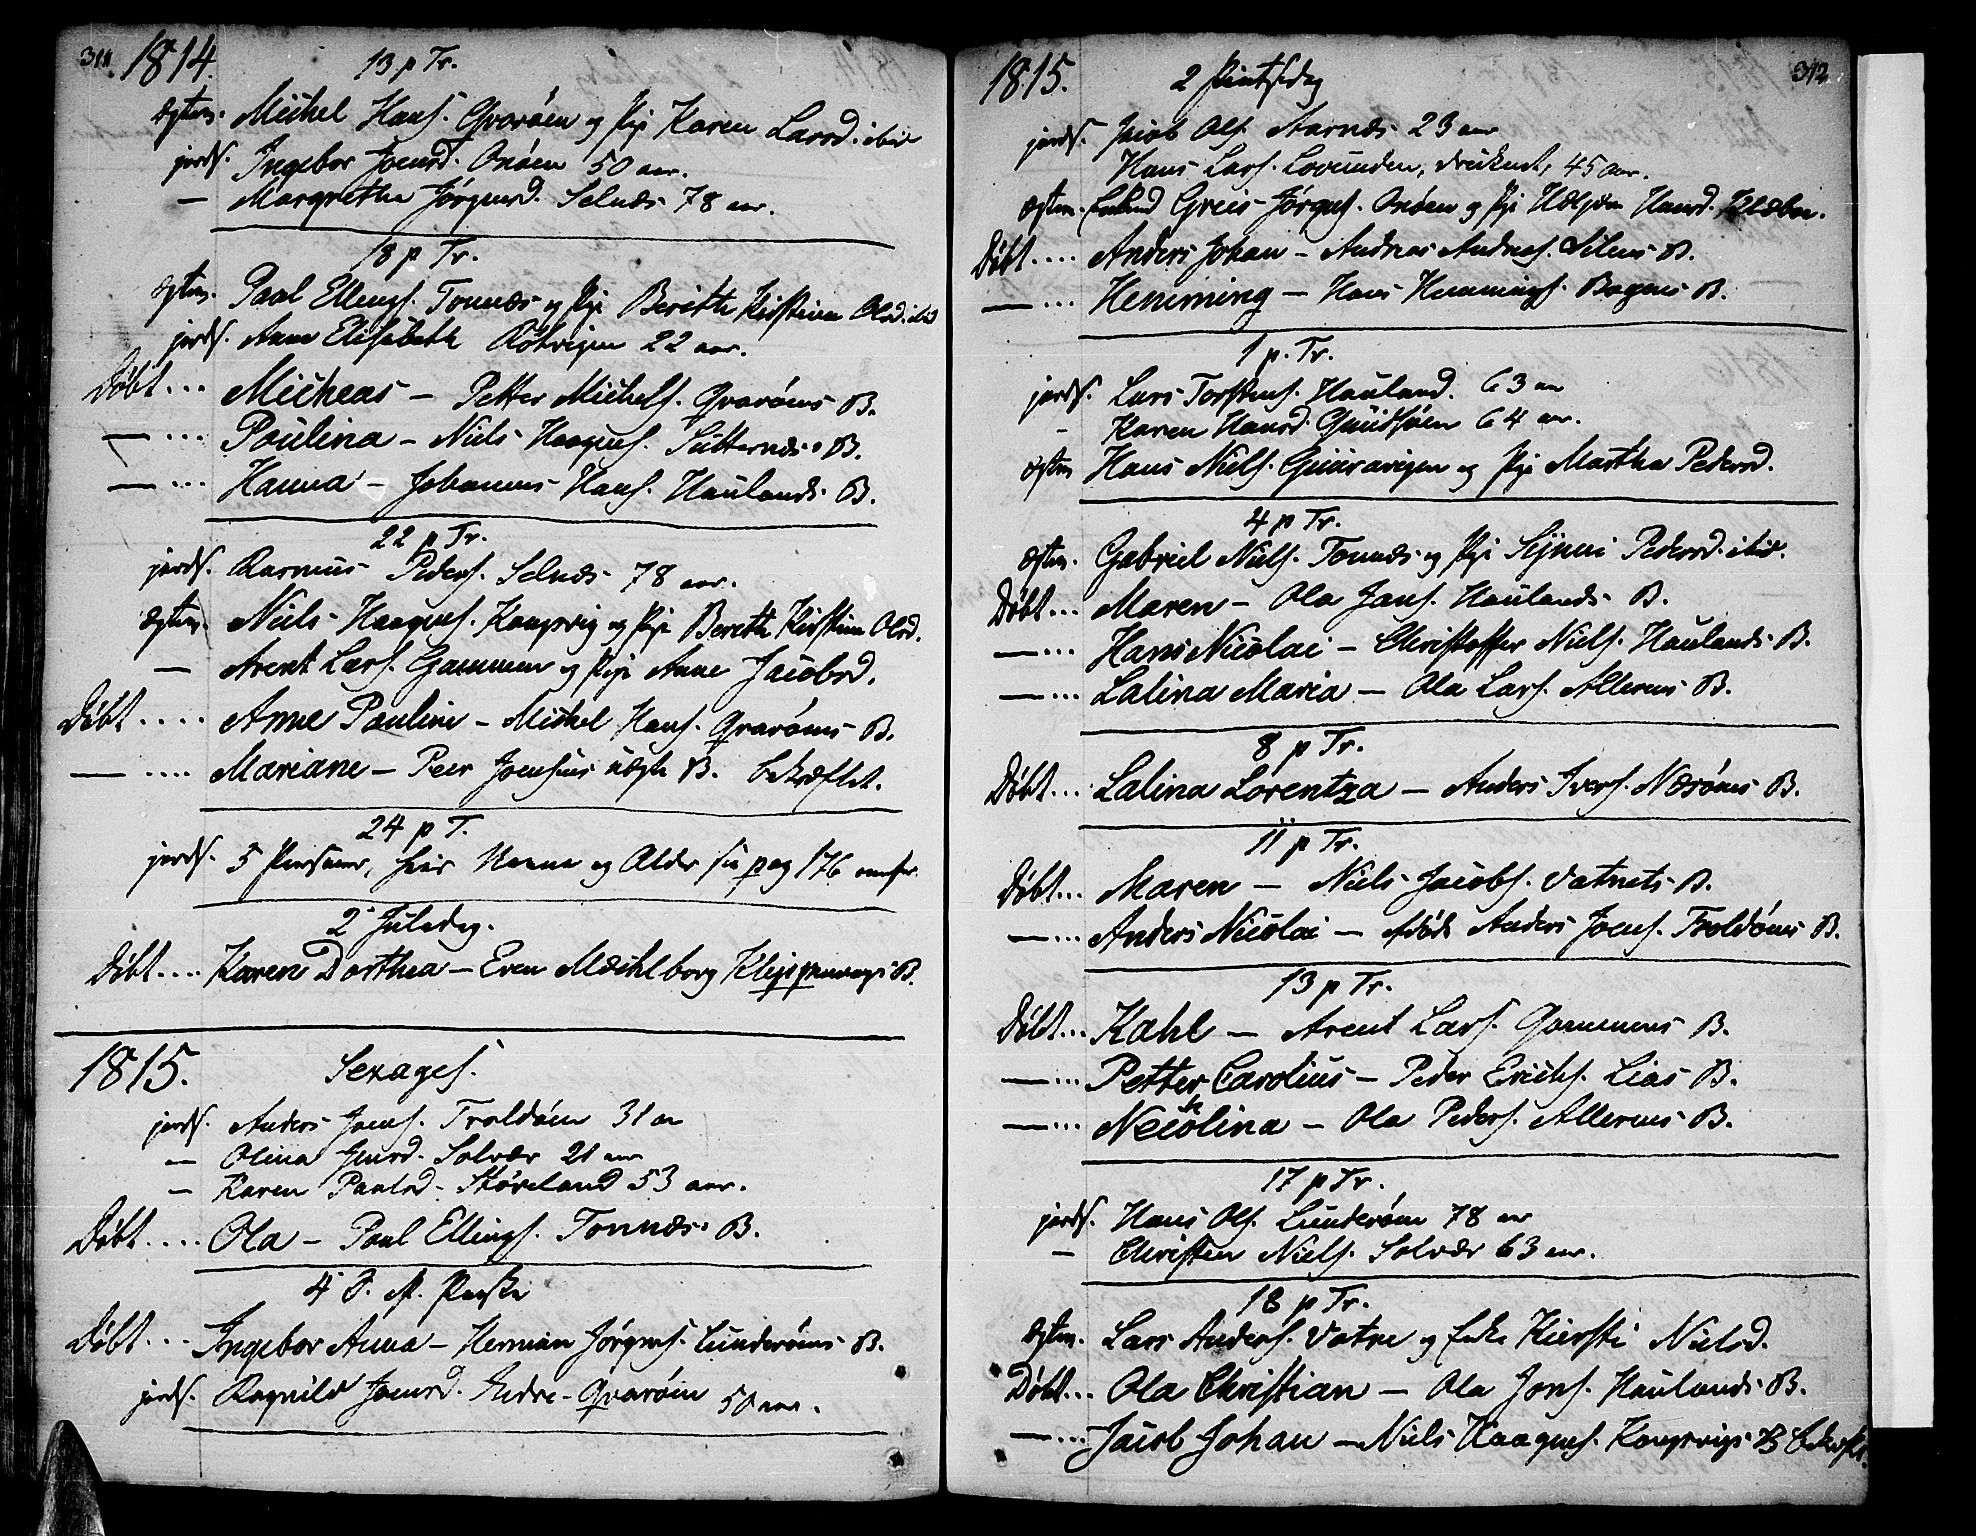 311 1814.
13 p Tr.
Ægtev. Michel Hans. Qvarøen og Pige Karen Larsd. ibid
jords. Ingebor Joensd. Onøen 50 aar.
— Margretha Jørgensd. Selnæs 78 aar.
18 p Tr.
Ægtev. Paul Ellings. Tonnæs og Pige Berethe Kirstina Olsd. ibid
jords. Anne Elisabeth Røtvigen 22 aar.
Døbt... Micheas — Petter Michels. Qvarøens B.
— ... Paulina — Niels Haagens. Sutternæs B.
— ... Hanna — Johannes Hans. Haulands B.
22 p Tr.
jords. Rasmus Peders. Selnæs 78 aar.
Ægtev. Niels Haagens. Kongsvig og Pige Berethe Kirstina Olsd.
— Arent Lars. Gammen og Pige Anne Jacobsd.
Døbt.... Anne Pauline — Michel Hans. Qvarøens B.
— .... Mariane — Peer Joensens uægte B. bekræftet.
24 p T.
jords. 5 Personer, hvis Navne og Alder see pag 176
2 Juledag.
Døbt.... Karen Dorthea — Even Mæhlborg Klippenvogs B.
1815. Sexages.
jords. Anders Joens. Troldøen 31 aar
— Olina Jensd. Solvær 21 aar
— Karen Paulsd. Støveland 53 aar.
Døbt.... Ola — Paul Ellings. Tonnæs B.
4 S. p. Paaske
Døbt... Ingebor Anna — Herman Jørgens. Lunderøens B.
jords. Ragnild Joensd. Indre-Qvarøen 50 aar.
1815. 2 Pintsedag 312
jords. Jacob Ols. Aarnæs 23 aar
Hans Lars. Lovunden, druknet, 45 aar.
Ægtev. Greis Jørgens. Onøen og Pige Hansd.
Døbt.... Anders Johan — Andreas Andreas. Silens B.
— ... Hemming — Hans Hemmings. Bogens B.
1 p. Tr.
jords. Lars Torstens. Hauland. 63 aar
- Karen Hansd. 64 aar.
Ægtev. Hans Niels. og Pige Martha Pedersd.
4 p Tr.
Ægtev. Gabriel Niels. Tonnæs og Pige Signni Pedersd. ibid.
Døbt... Maren — Ola Jons. Haulands B.
— ... Hans Nicolai — Christoffer Niels. Haulands B.
— ... Lalina Maria — Ola Lars. Allerens B.
8 p Tr.
Døbt... Lalina Lorentza — Anders Ivers. Nærøens B.
11 p Tr.
Døbt... Maren — Niels Jacobs. Vatnets B.
— ... Anders Nicolai — afdøde Anders Joens. Troldøens B.
13 p Tr.
Døbt... Kahl — Arent Lars. Gammens B.
— ... Petter Carolius — Peder Erichs. Lias B.
— ... Necolina — Ola Peders. Allerens B.
17 p Tr.
jords. Hans Ols. Lunderøen 78 aar
— Christen Niels. Solvær 63 aar.
18 p Tr.
Ægtev. Lars Anders. Vatne og Enke Kiersti Nielsd.
Døbt... Ola Christian — Ola Jons. Haulands B.
— ... Jacob Johan — Niels Haagens. Kongsvigs B